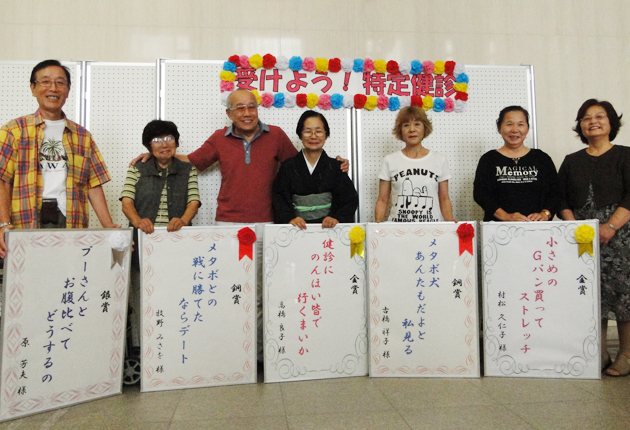 受けよう！特定健診
銀賞
プーさんと
お腹比べて
どうするの
原 芳夫 様
銅賞
メタボとの
戦に勝てた
ならデート
牧野 みさを 様
金賞
健診に
のんほい皆で
行くまいか
高橋 良子 様
銅賞
メタボ犬
あんたもだよと
私見る
古橋 祥子 様
金賞
小さめの
Gパン買って
ストレッチ
村松 久仁子 様
PEANUTS
SNOOPY
IS THE WORLD
MAGICAL
Memory